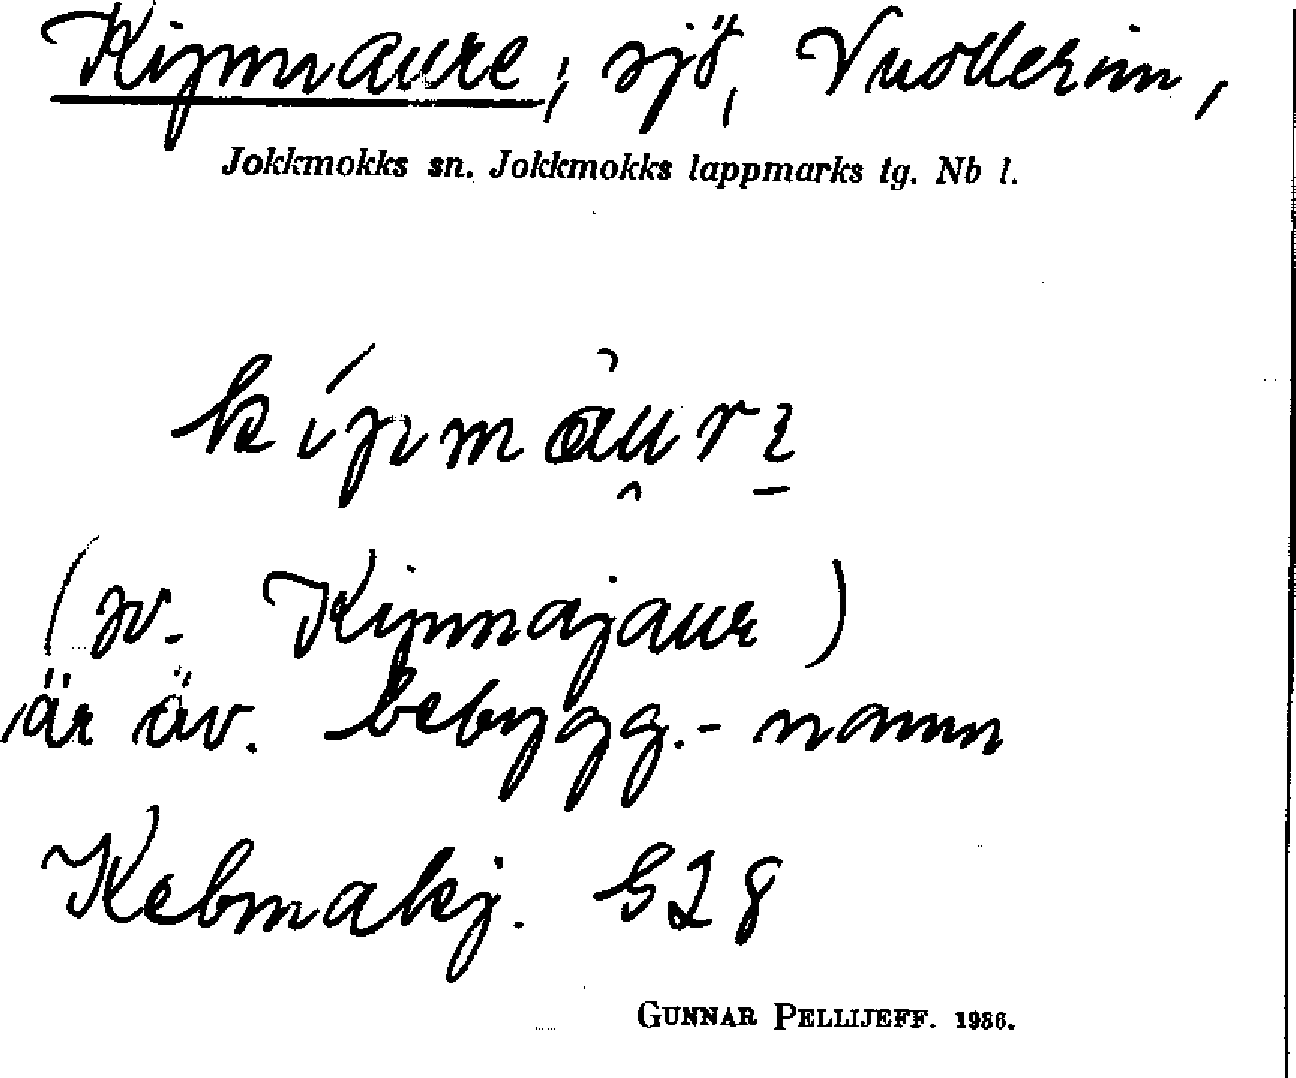 Kipmaure, sjö, Vuollerim,
Jokkmokks sn. Jokkmokks lappmarks tg. Nb l.
kipmaur
(sv. Kipmajaur)
är äv. bebygg.-namn
Kebmakj. G28
GUNNAR PELLIJEFF. 1936.